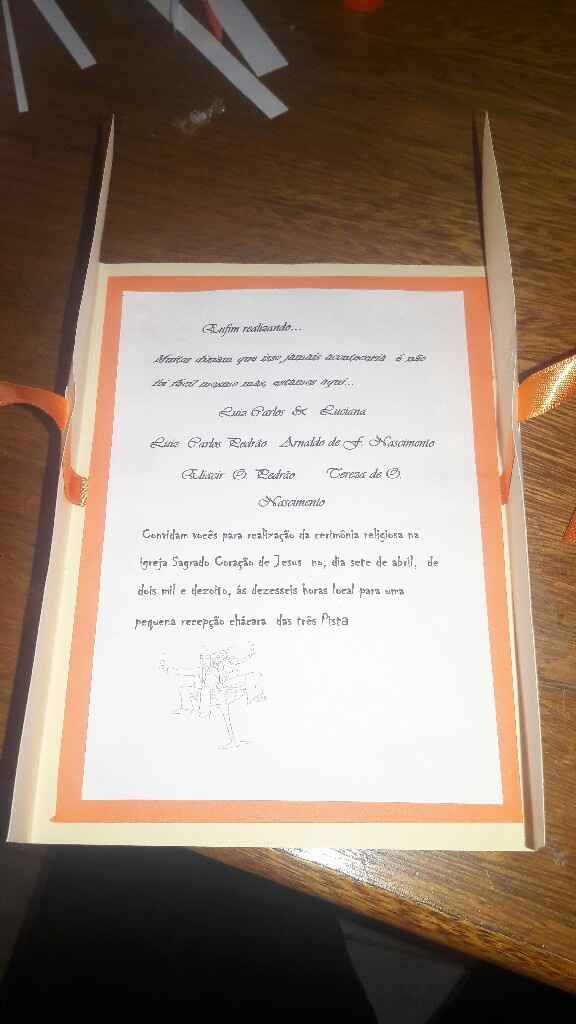 Enfim realizando...
Muitos diziam que isso jamais aconteceria é não
foi fácil mesmo mas, estamos aqui...
Luiz Carlos & Luciana
Luiz Carlos Pedrão Arnaldo de F. Nascimento
Eliacir O. Pedrão Tereza de O.
Nascimento
Convidam vocês para realização da cerimônia religiosa na
igreja Sagrado Coração de Jesus no, dia sete de abril, de
dois mil e dezoito, ás dezesseis horas local para uma
pequena recepção chácara das três Pista